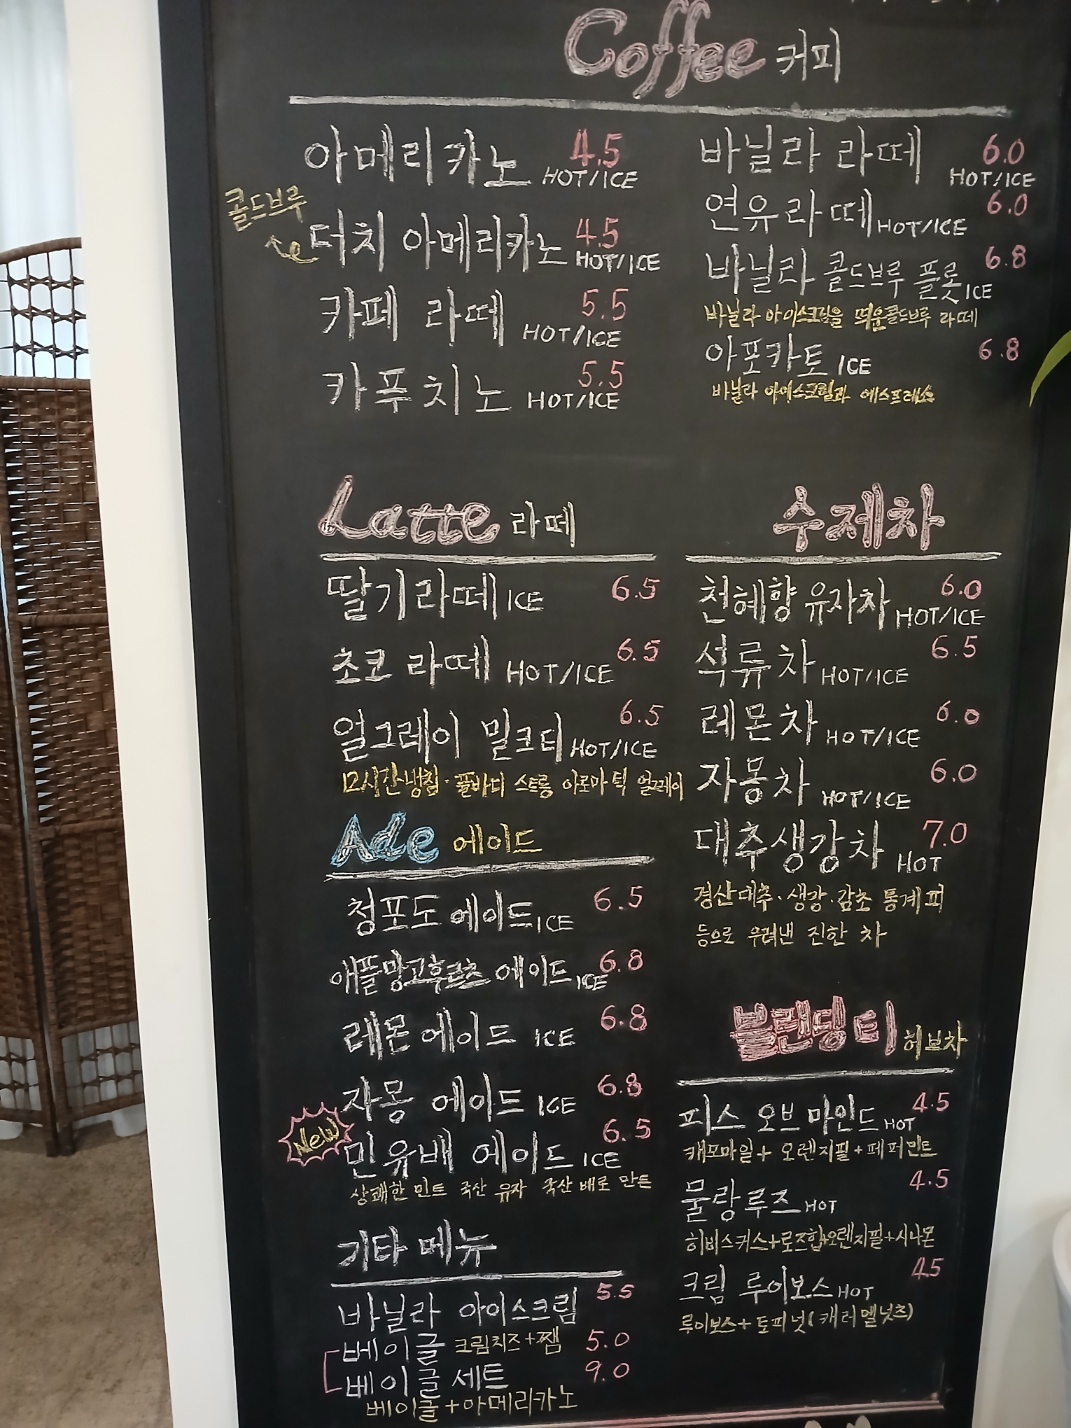 Coffee 커피
아메리카노 4.5 HOT/ICE
콜드브루
더치 아메리카노 4.5 HOT/ICE
카페 라떼 5.5 HOT/ICE
카푸치노 5.5 HOT/ICE
바닐라 라떼 6.0 HOT/ICE
연유라떼 HOT/ICE 6.0
바닐라 콜드브루 플롯 ICE 6.8
바닐라 아이스크림을 띄운 콜드브루 라떼
아포카토 ICE 6.8
바닐라 아이스크림과 에스프레소
Latte 라떼
딸기라떼 ICE 6.5
초코 라떼 HOT/ICE 6.5
얼그레이 밀크티 HOT/ICE 6.5
12시간냉침·풀바디 스트롱 아로마틱 얼그레이
Ade 에이드
청포도 에이드 ICE 6.5
애플망고후르츠 에이드 ICE 6.8
레몬에이드 ICE 6.8
자몽 에이드 ICE 6.8
New
민유배 에이드 ICE 6.5
상쾌한 민트 국산 유자 국산 배로 만든
기타 메뉴
바닐라 아이스크림 5.5
베이글 크림치즈+쨈 5.0
베이글 세트 9.0
베이글+아메리카노
수제차
천혜향 유자차 HOT/ICE 6.0
석류차 HOT/ICE 6.5
레몬차 HOT/ICE 6.0
자몽차 HOT/ICE 6.0
대추생강차 HOT 7.0
경산대추·생강·감초 통계피
등으로 우려낸 진한 차
블랜딩 티 허브차
피스 오브 마인드 HOT 4.5
캐모마일+오렌지필+페퍼민트
물랑루즈 HOT 4.5
히비스커스+로즈힙+오렌지필+시나몬
크림 루이보스 HOT 4.5
루이보스+토피넛(캐러멜넛츠)